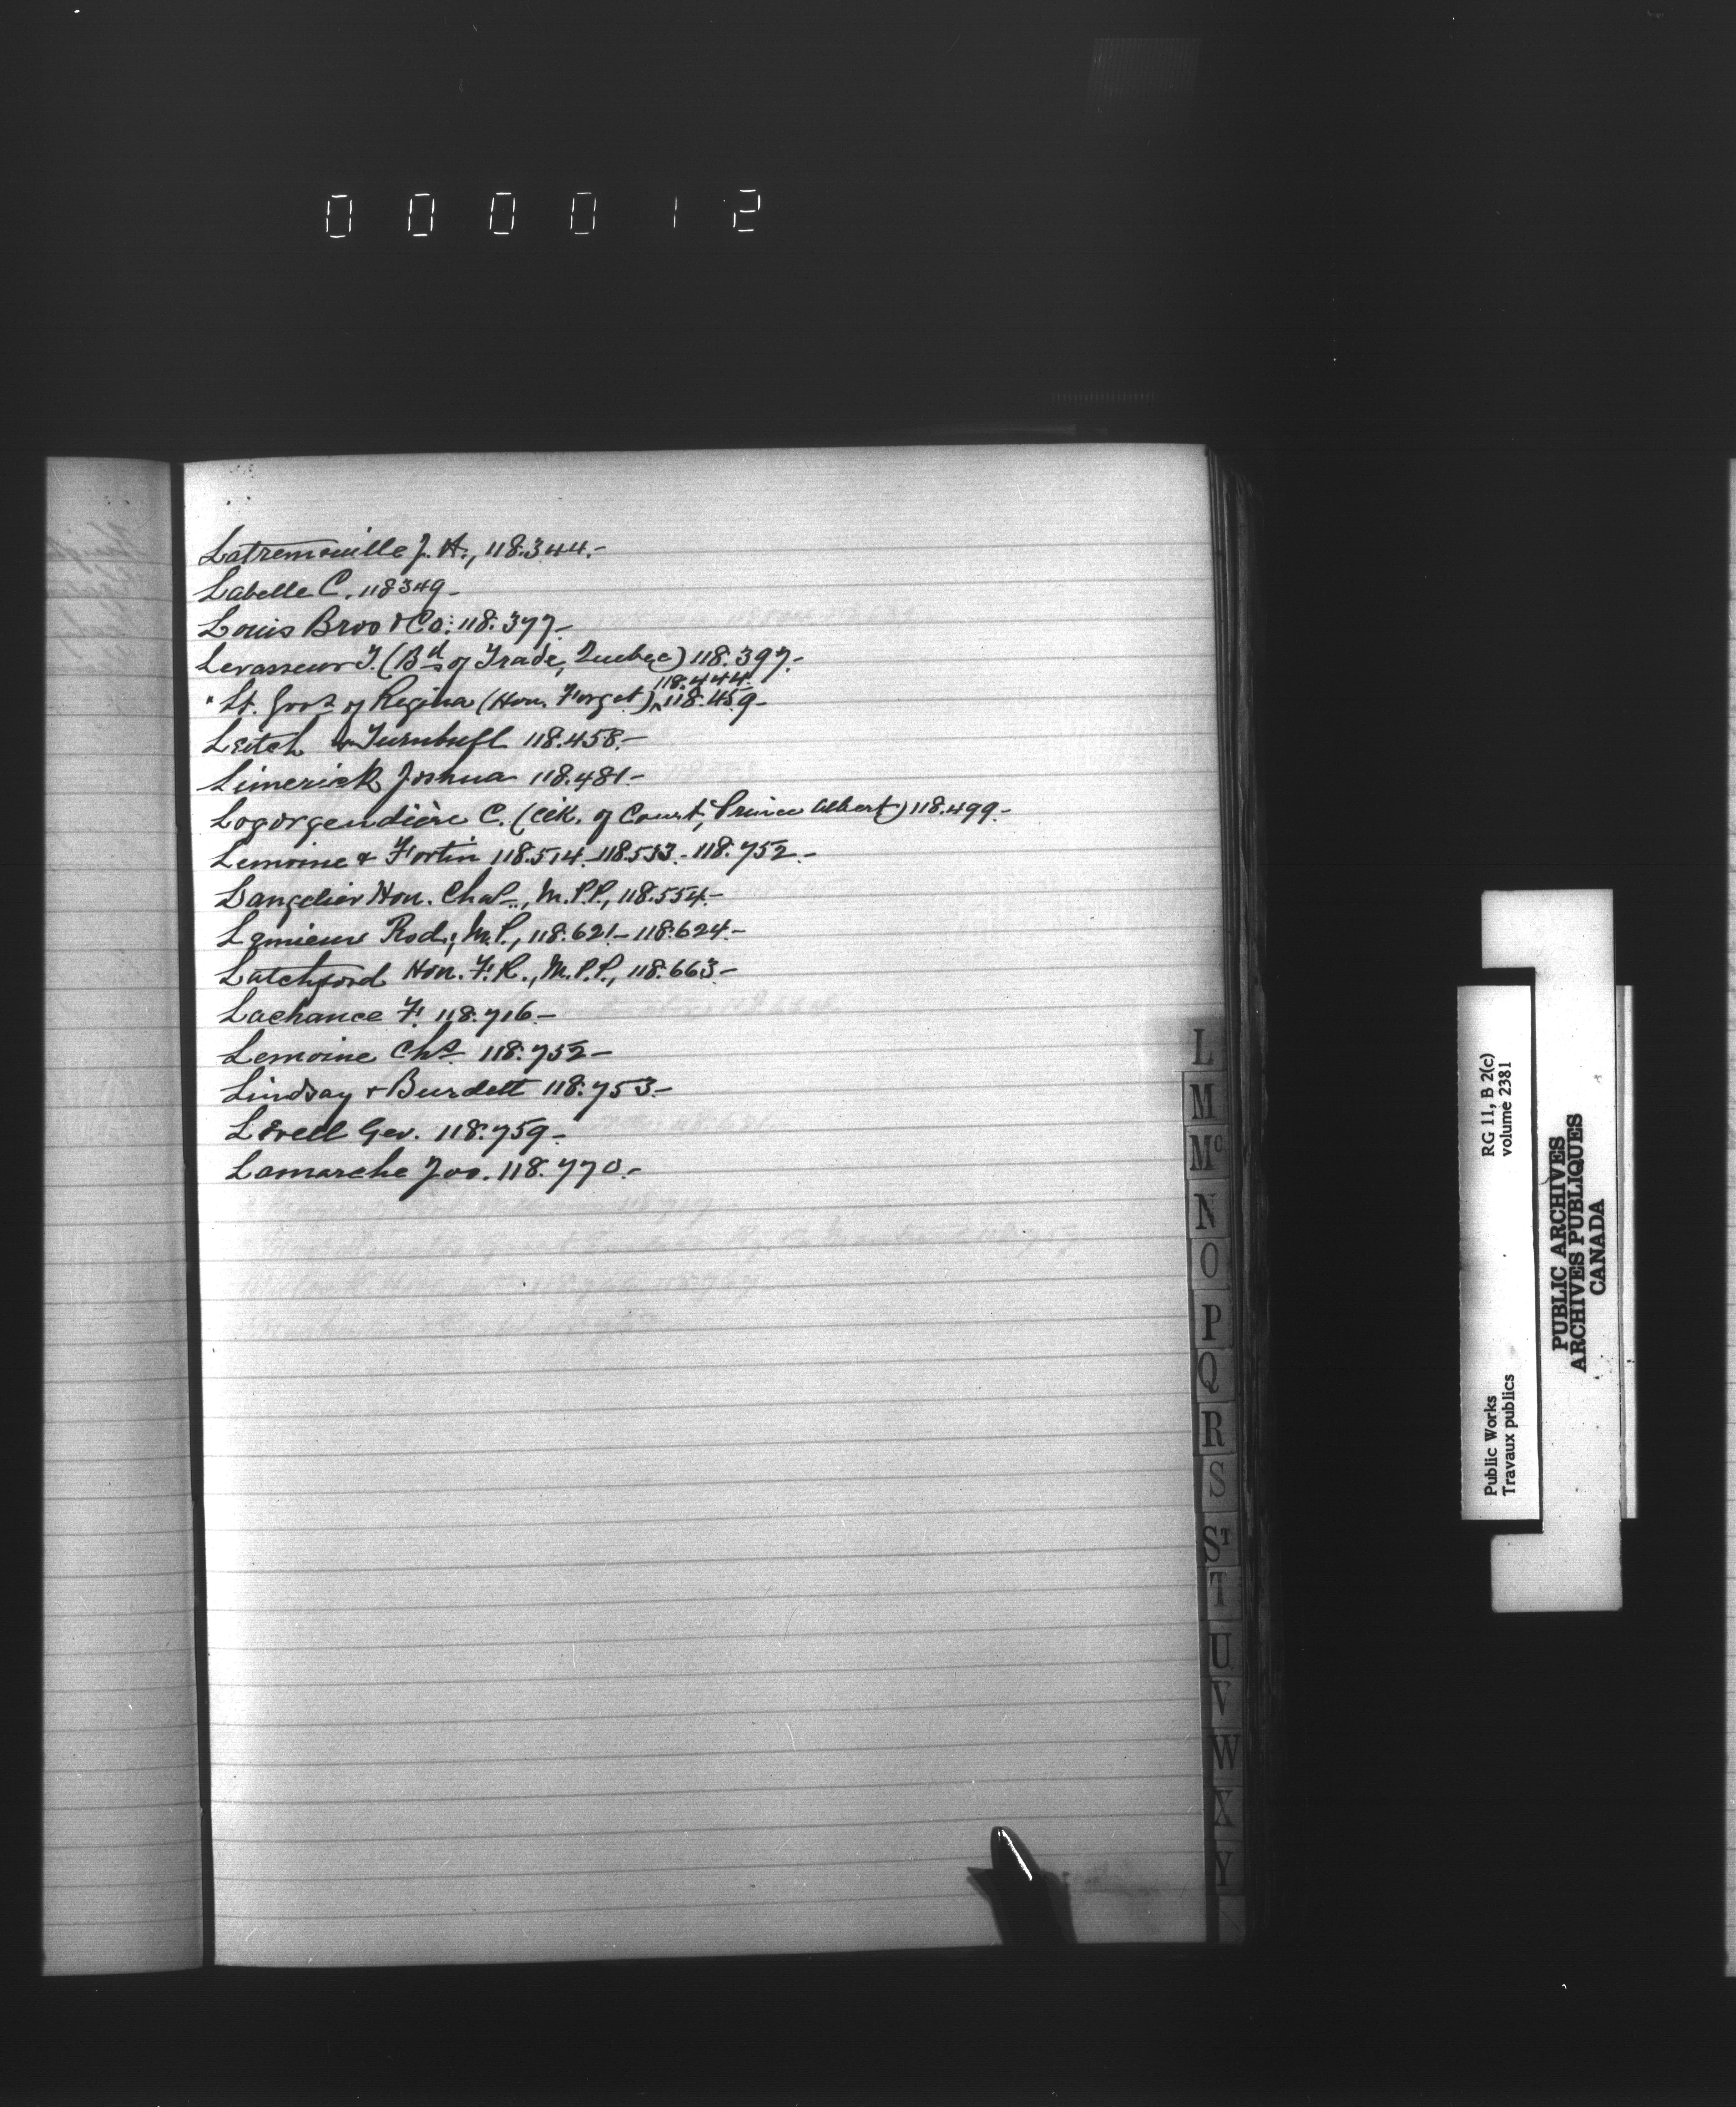 000012
Latremouille J. A., 118.344.-
Labelle C. 118349-
Louis Bros & Co: 118.377-
Levasseur T. (Bd of Trade, Quebec) 118.397.-
118.444.
" Lt. Govr of Regina (Hon. Forget) 118.459-
Leitch & Turnbull 118.458.-
Limerick Joshua 118.481-
Logorgendière C. (Clk. of Court, Prince Albert) 118.499-
Lemoine & Fortin 118.514-118.533-118.752-
Langelier Hon. Chas., M.P.P., 118.554-
Lemieux Rod., M.P., 118.621-118.624-
Latchford Hon. F.R., M.P.P., 118.663-
Lachance F. 118.716-
Lemoine Chs 118.752-
Lindsay & Burdett 118.753-
Lovell Geo. 118.759-
Lamarche Jos. 118.770.-
L
M
Mc
N
O
P
Q
R
S
ST
T
U
V
W
X
Y
Public Works
Travaux publics
RG 11, B 2(c)
volume 2381
PUBLIC ARCHIVES
ARCHIVES PUBLIQUES
CANADA